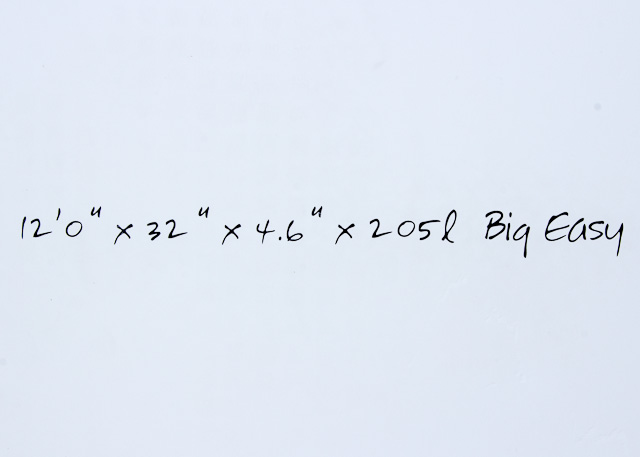 12'0" x 32" x 4.6" x 205l Big Easy